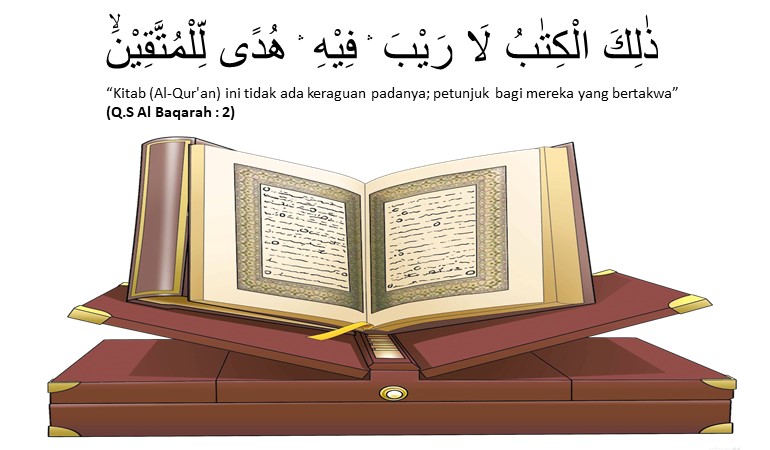 ذٰلِكَ الْكِتٰبُ لَا رَيْبَ ۛ فِيْهِ ۛ هُدًى لِّلْمُتَّقِيْنَۙ
“Kitab (Al-Qur'an) ini tidak ada keraguan padanya; petunjuk bagi mereka yang bertakwa”
(Q.S Al Baqarah : 2)